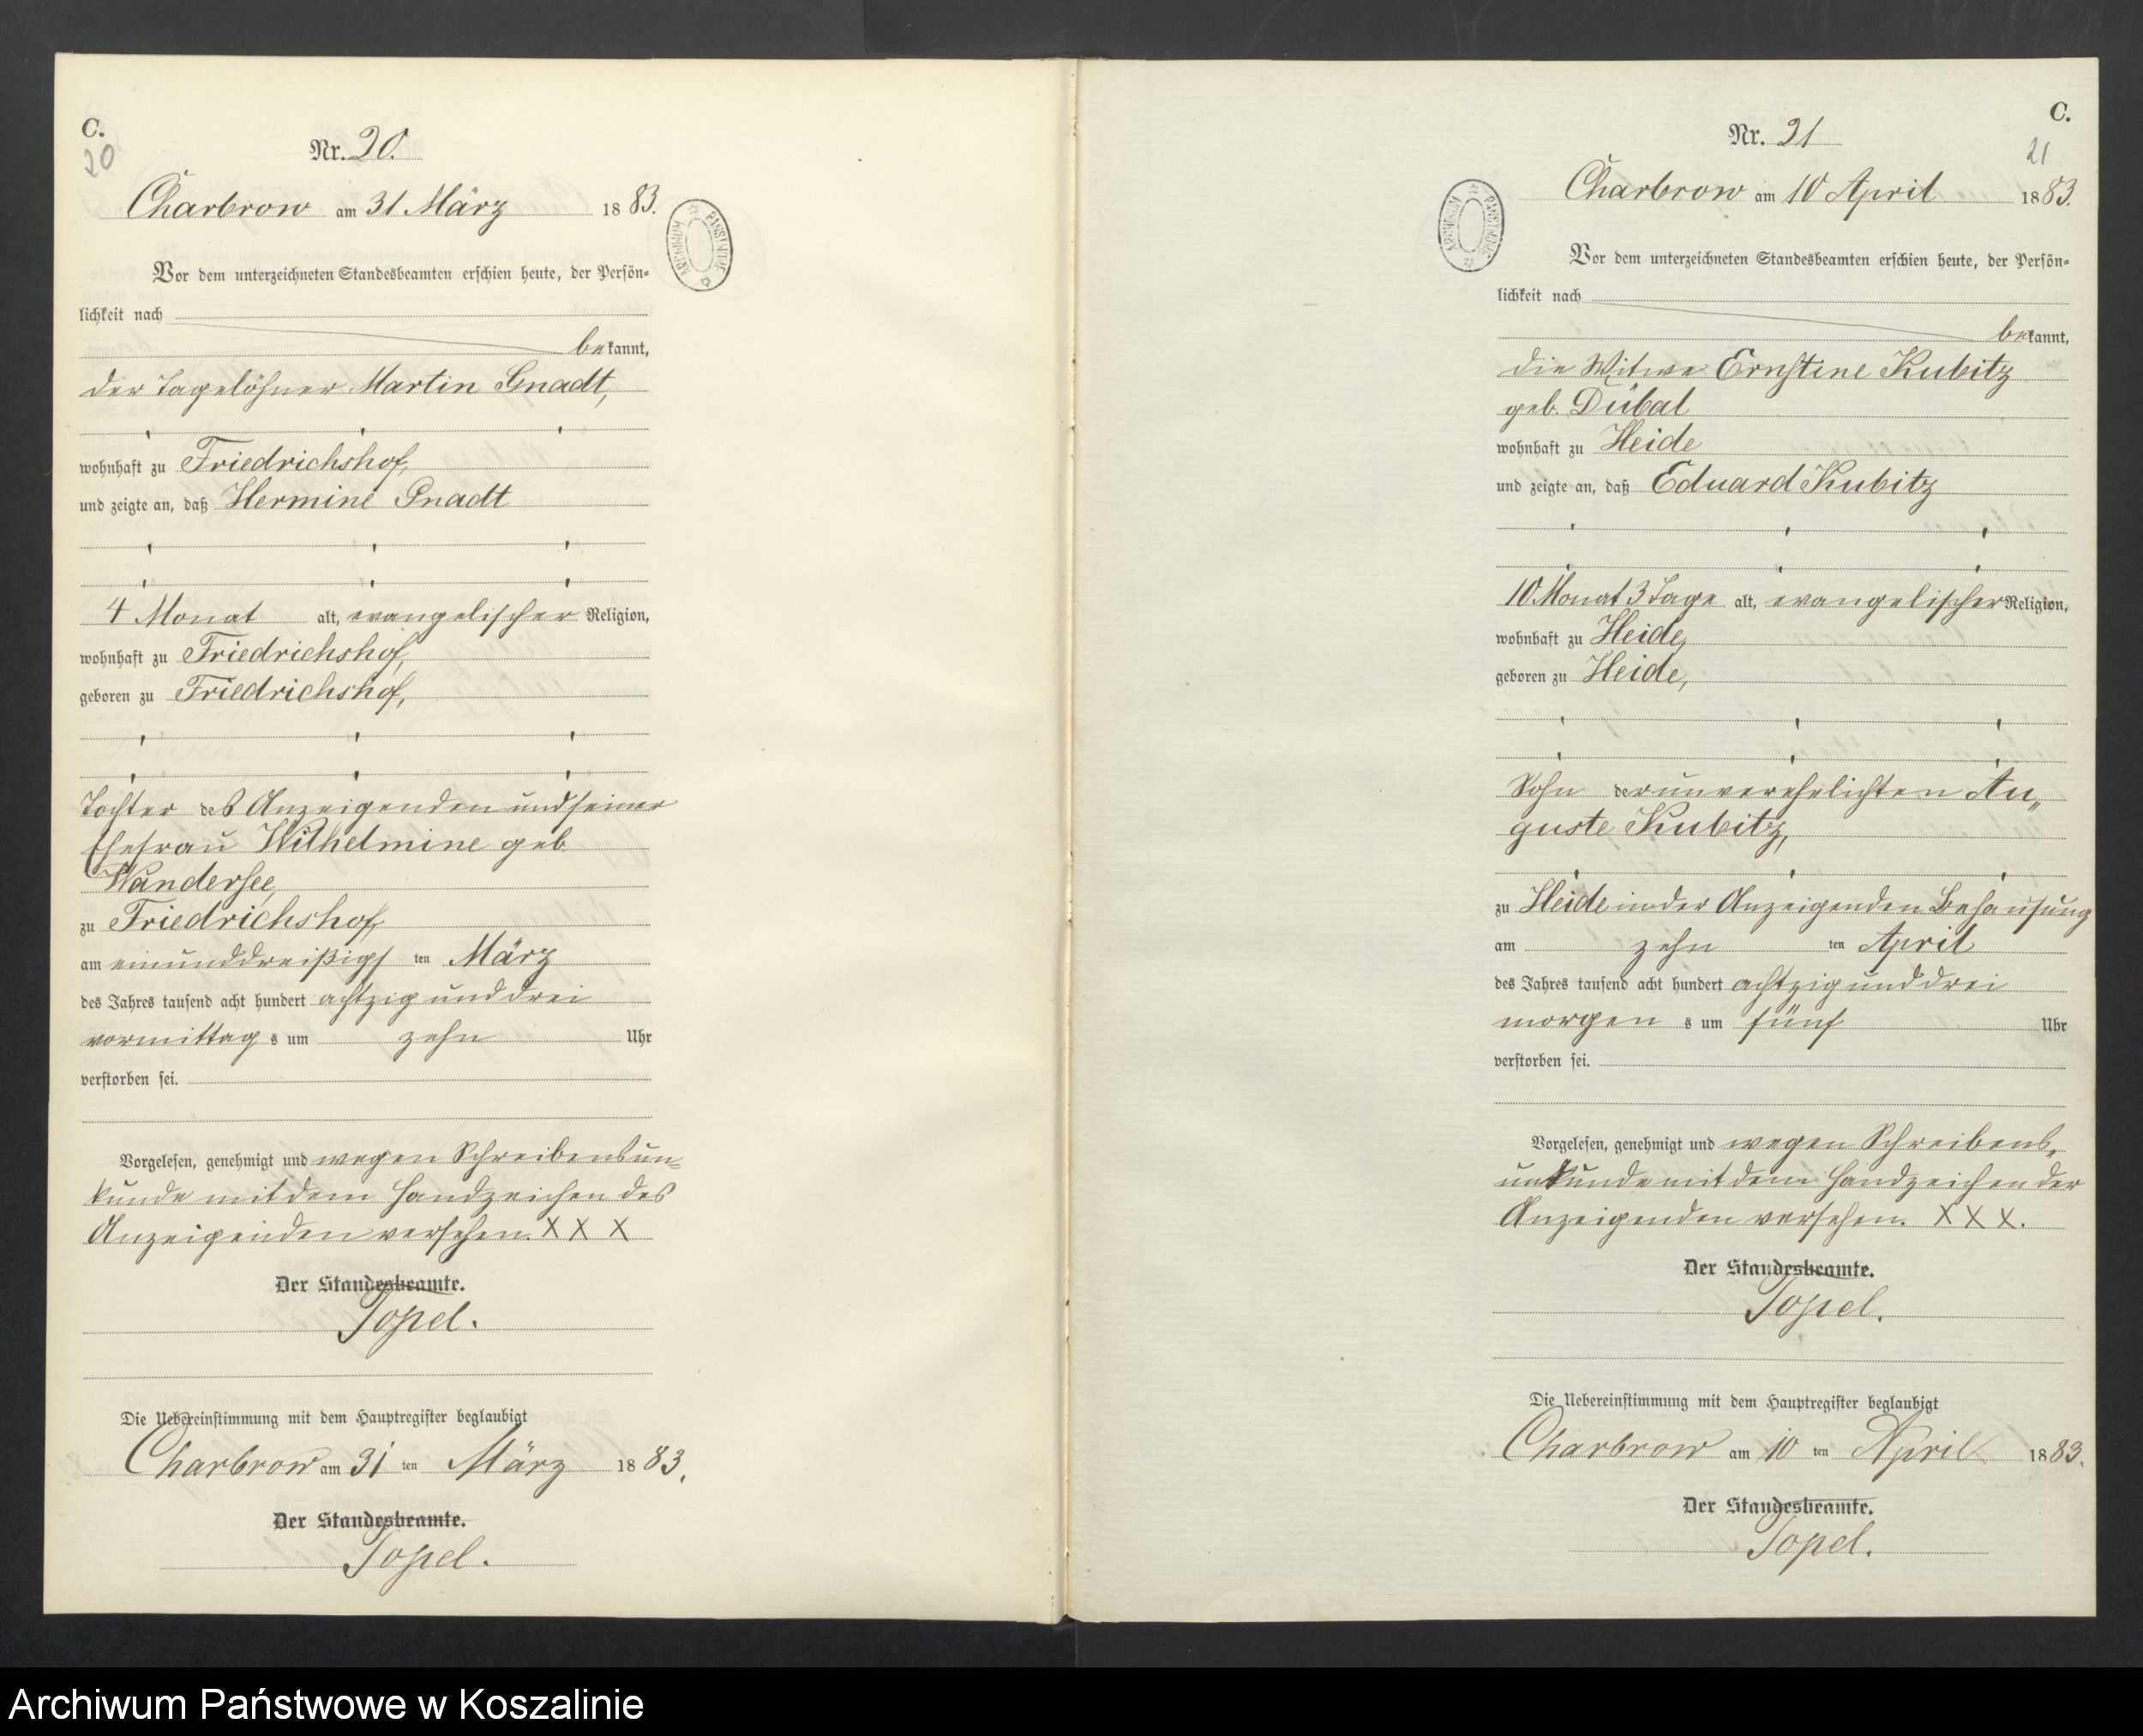 C.
20
Nr. 20.
Charbrow am 31 März 1883.
ARCHIWUM PAŃSTWOWE
Vor dem unterzeichneten Standesbeamten erschien heute, der Persön-
lichkeit nach
bekannt,
der Tagelöhner Martin Gnadt,
wohnhaft zu Friedrichshof,
und zeigte an, daß Hermine Gnadt
4 Monat alt, evangelischer Religion,
wohnhaft zu Friedrichshof,
geboren zu Friedrichshof,
Tochter des Anzeigenden und seiner
Ehefrau Wilhelmine geb.
Wandersee,
zu Friedrichshof,
am einunddreißigs ten März
des Jahres tausend acht hundert achtzig und drei
vormittags um zehn Uhr
verstorben sei.
Vorgelesen, genehmigt und wegen Schreibensun-
kunde mit dem Handzeichen des
Anzeigenden versehen. X X X
Der Standesbeamte.
Topel.
Die Uebereinstimmung mit dem Hauptregister beglaubigt
Charbrow am 31 ten März 1883.
Der Standesbeamte.
Topel.
C.
21
Nr. 21
Charbrow am 10 April 1883.
ARCHIWUM PAŃSTWOWE
Vor dem unterzeichneten Standesbeamten erschien heute, der Persön-
lichkeit nach
bekannt,
die Witwe Ernstine Kubitz
geb. Dübal
wohnhaft zu Heide
und zeigte an, daß Eduard Kubitz
10 Monat 3 Tage alt, evangelischer Religion,
wohnhaft zu Heide,
geboren zu Heide,
Sohn der unverehelichten Au„
guste Kubitz,
zu Heide in der Anzeigenden Behausung
am zehn ten April
des Jahres tausend acht hundert achtzig und drei
morgens um fünf Uhr
verstorben sei.
Vorgelesen, genehmigt und wegen Schreibens„
unkunde mit dem Handzeichen der
Anzeigenden versehen. X X X.
Der Standesbeamte.
Topel.
Die Uebereinstimmung mit dem Hauptregister beglaubigt
Charbrow am 10 ten April 1883.
Der Standesbeamte.
Topel.
Archiwum Państwowe w Koszalinie